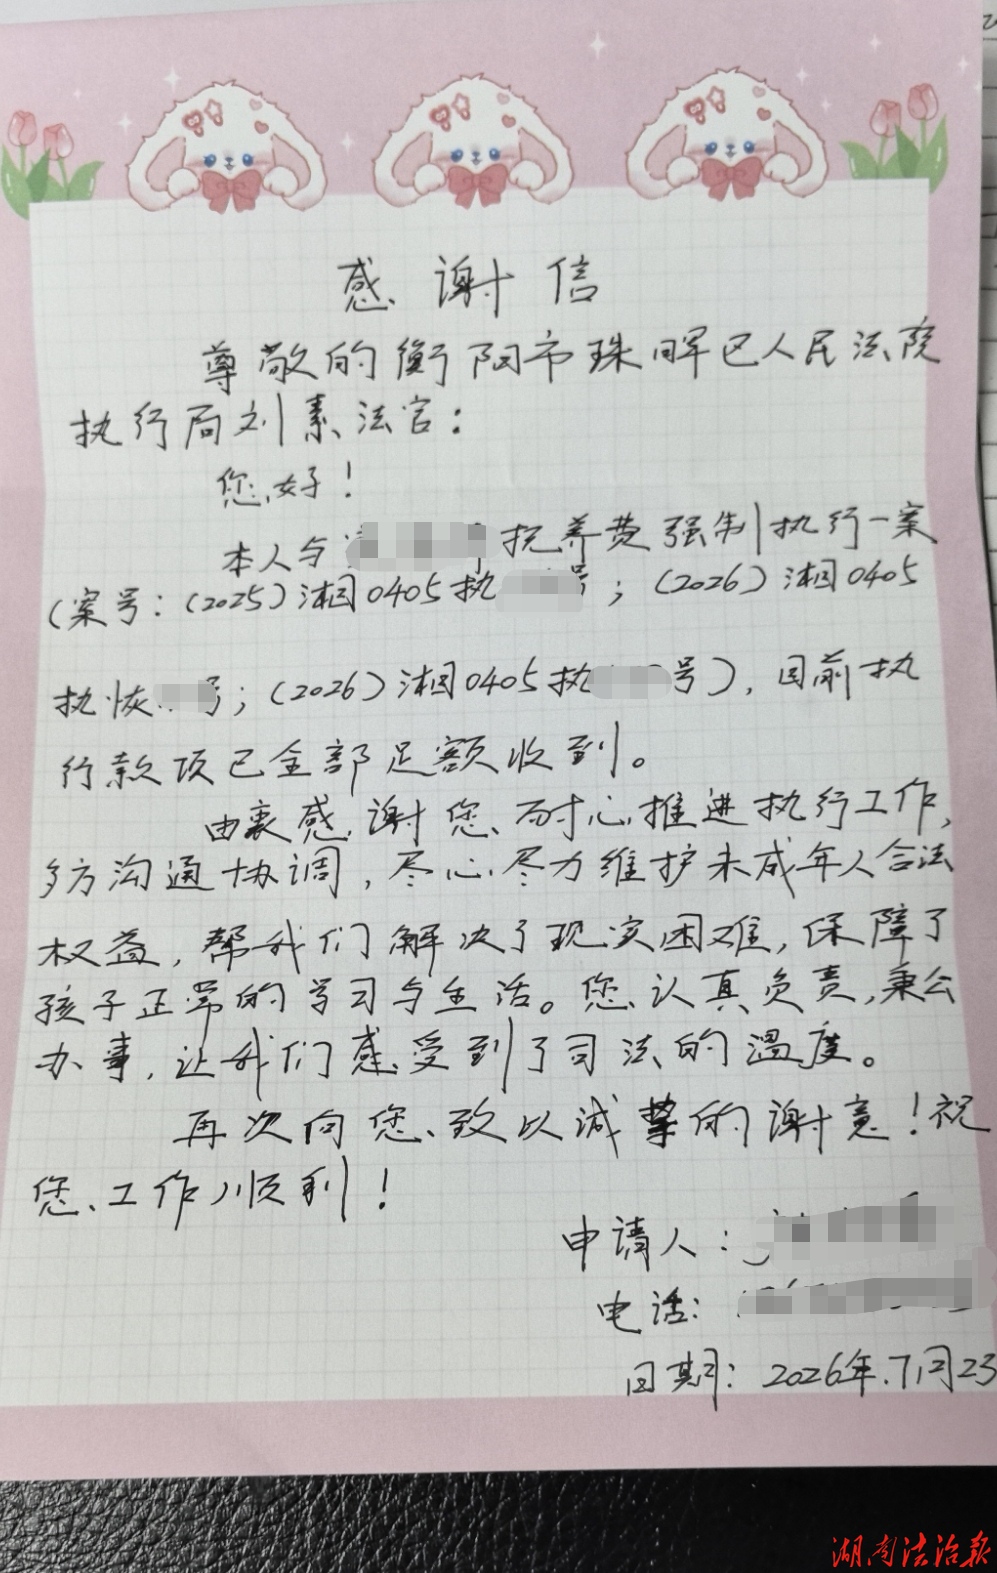 感谢信
尊敬的衡阳市珠晖区人民法院
执行局刘素法官：
您好！
本人与 抚养费强制执行一案
（案号：（2025）湘0405执 号；（2026）湘0405
执恢 号；（2026）湘0405执 号），目前执
行款项已全部足额收到。
由衷感谢您耐心推进执行工作，
多方沟通协调，尽心尽力维护未成年人合法
权益，帮我们解决了现实困难，保障了
孩子正常的学习与生活。您认真负责，秉公
办事，让我们感受到了司法的温度。
再次向您致以诚挚的谢意！祝
您工作顺利！
申请人：
电话：
日期：2026年7月23
湖南法治报